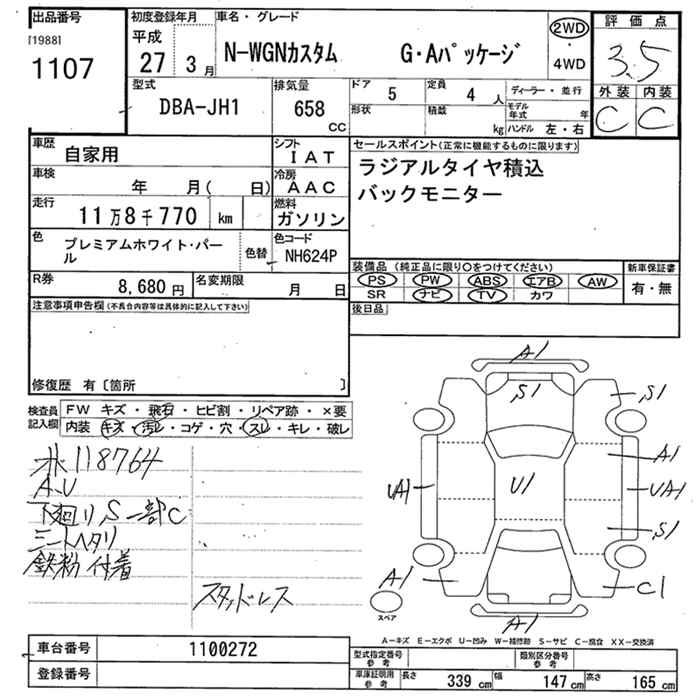 出品番号
[1988]
1107
初度登録年月
平成
27 3月
車名・グレード
N-WGNカスタム G・Aパッケージ
2WD
・
4WD
評価点
3.5
外装 内装
C C
型式
DBA-JH1
排気量
658
CC
ドア
5
定員
4人
形状
積載
kg
ディーラー・並行
モデル年式 年
ハンドル 左・右
車歴
自家用
シフト
IAT
車検
年 月( 日)
冷房
AAC
走行
11万8千770 km
燃料
ガソリン
色
プレミアムホワイト・パール
色替
色コード
NH624P
R券
8,680円
名変期限
月 日
セールスポイント(正常に機能するものに限ります)
ラジアルタイヤ積込
バックモニター
装備品 (純正品に限り○をつけてください)
PS PW ABS エアB AW
SR ナビ TV カワ
新車保証書
有・無
後日品
注意事項申告欄(不具合内容等は具体的に記入して下さい)
修復歴 有〔箇所 〕
検査員記入欄
FW キズ・飛石・ヒビ割・リペア跡・×要
内装 キズ・汚レ・コゲ・穴・スレ・キレ・破レ
118764
A.U
下廻りS一部C
シートヘタリ
鉄粉付着
スタッドレス
A1
S1
S1
A1
UA1
U1
UA1
S1
A1
C1
A1
スペア
A-キズ E-エクボ U-凹み W-補修跡 S-サビ C-腐食 XX-交換済
車台番号
1100272
登録番号
型式指定番号
参考
類別区分番号
参考
車庫証明用
参考
長さ 339 cm 幅 147 cm 高さ 165 cm